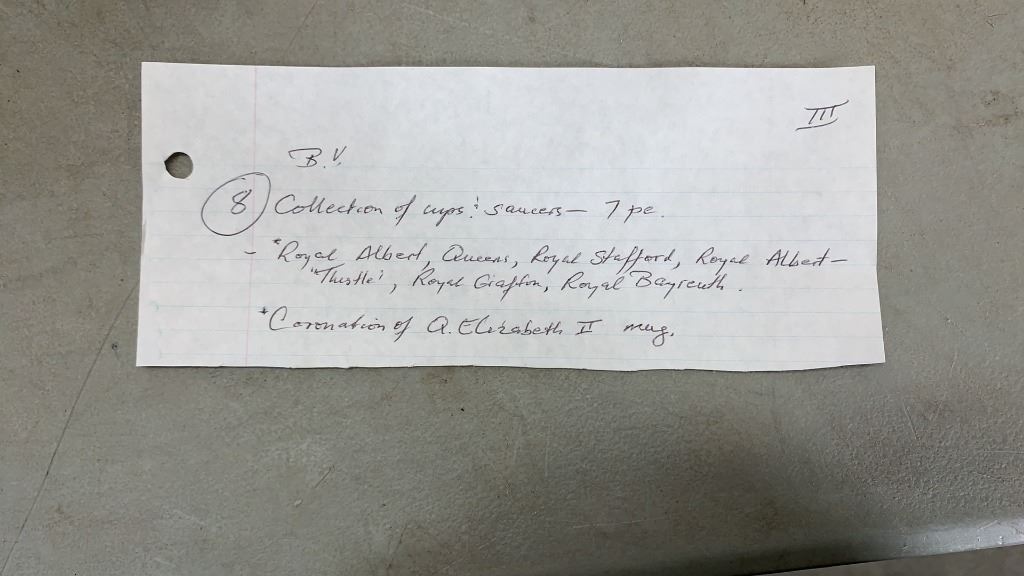 III
B.V.
8 Collection of cups & saucers — 7 pc.
- *Royal Albert, Queens, Royal Stafford, Royal Albert —
"Thistle", Royal Grafton, Royal Bayreuth.
*Coronation of Q. Elizabeth II mug.